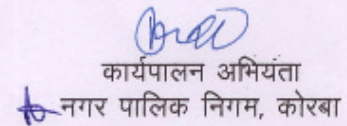 कार्यपालन अभियंता
नगर पालिक निगम, कोरबा